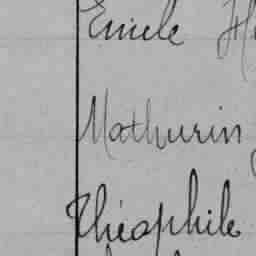 Emile H
Mathurin
Théophile